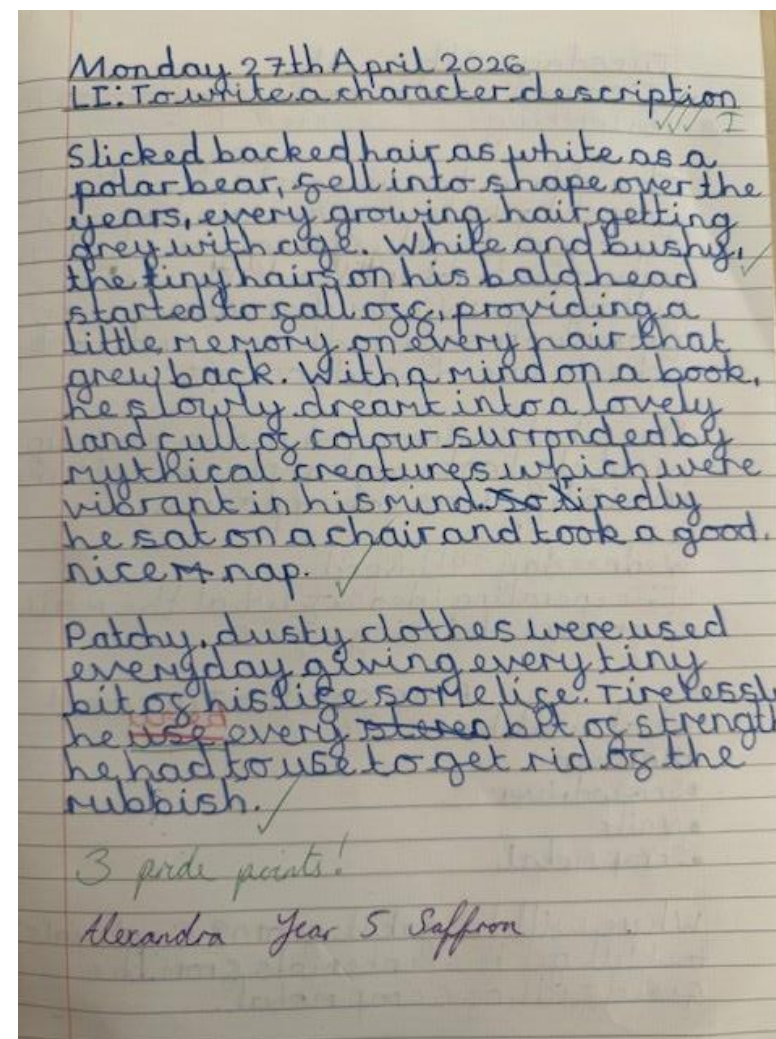 Monday 27th April 2026
LI: To write a character description
I
Slicked backed hair as white as a
polar bear, fell into shape over the
years, every growing hair getting
grey with age. White and bushy,
the tiny hairs on his bald head
started to fall off, providing a
little memory on every hair that
grew back. With a mind on a book,
he slowly dreamt into a lovely
land full of colour surronded by
mythical creatures which were
vibrant in his mind. So Tiredly
he sat on a chair and took a good.
nice nap.
Patchy, dusty clothes were used
everyday giving every tiny
bit of his life some life. Tirelessly
he use every bit of strength
he had to use to get rid of the
rubbish.
3 pride points!
Alexandra Year 5 Saffron